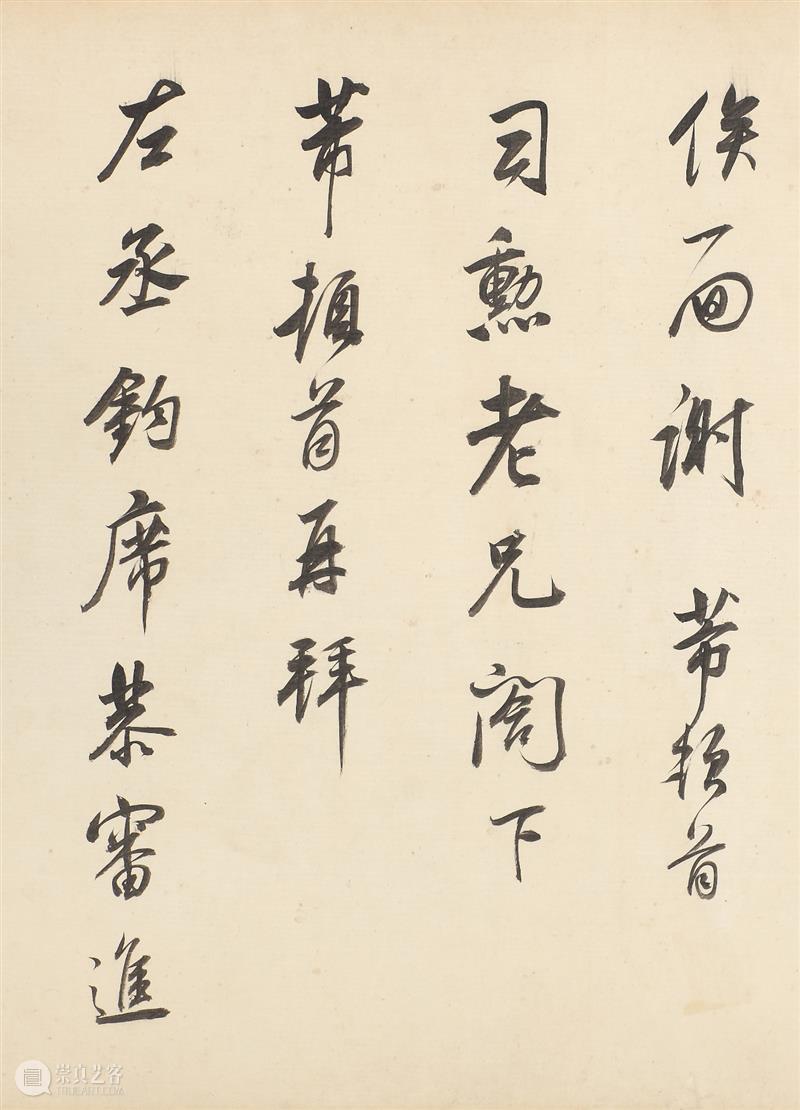 俟面謝 芾頓首
司勳老兄閤下
芾頓首再拜
左丞鈞席恭審進
崇真艺客
TRUEART.COM